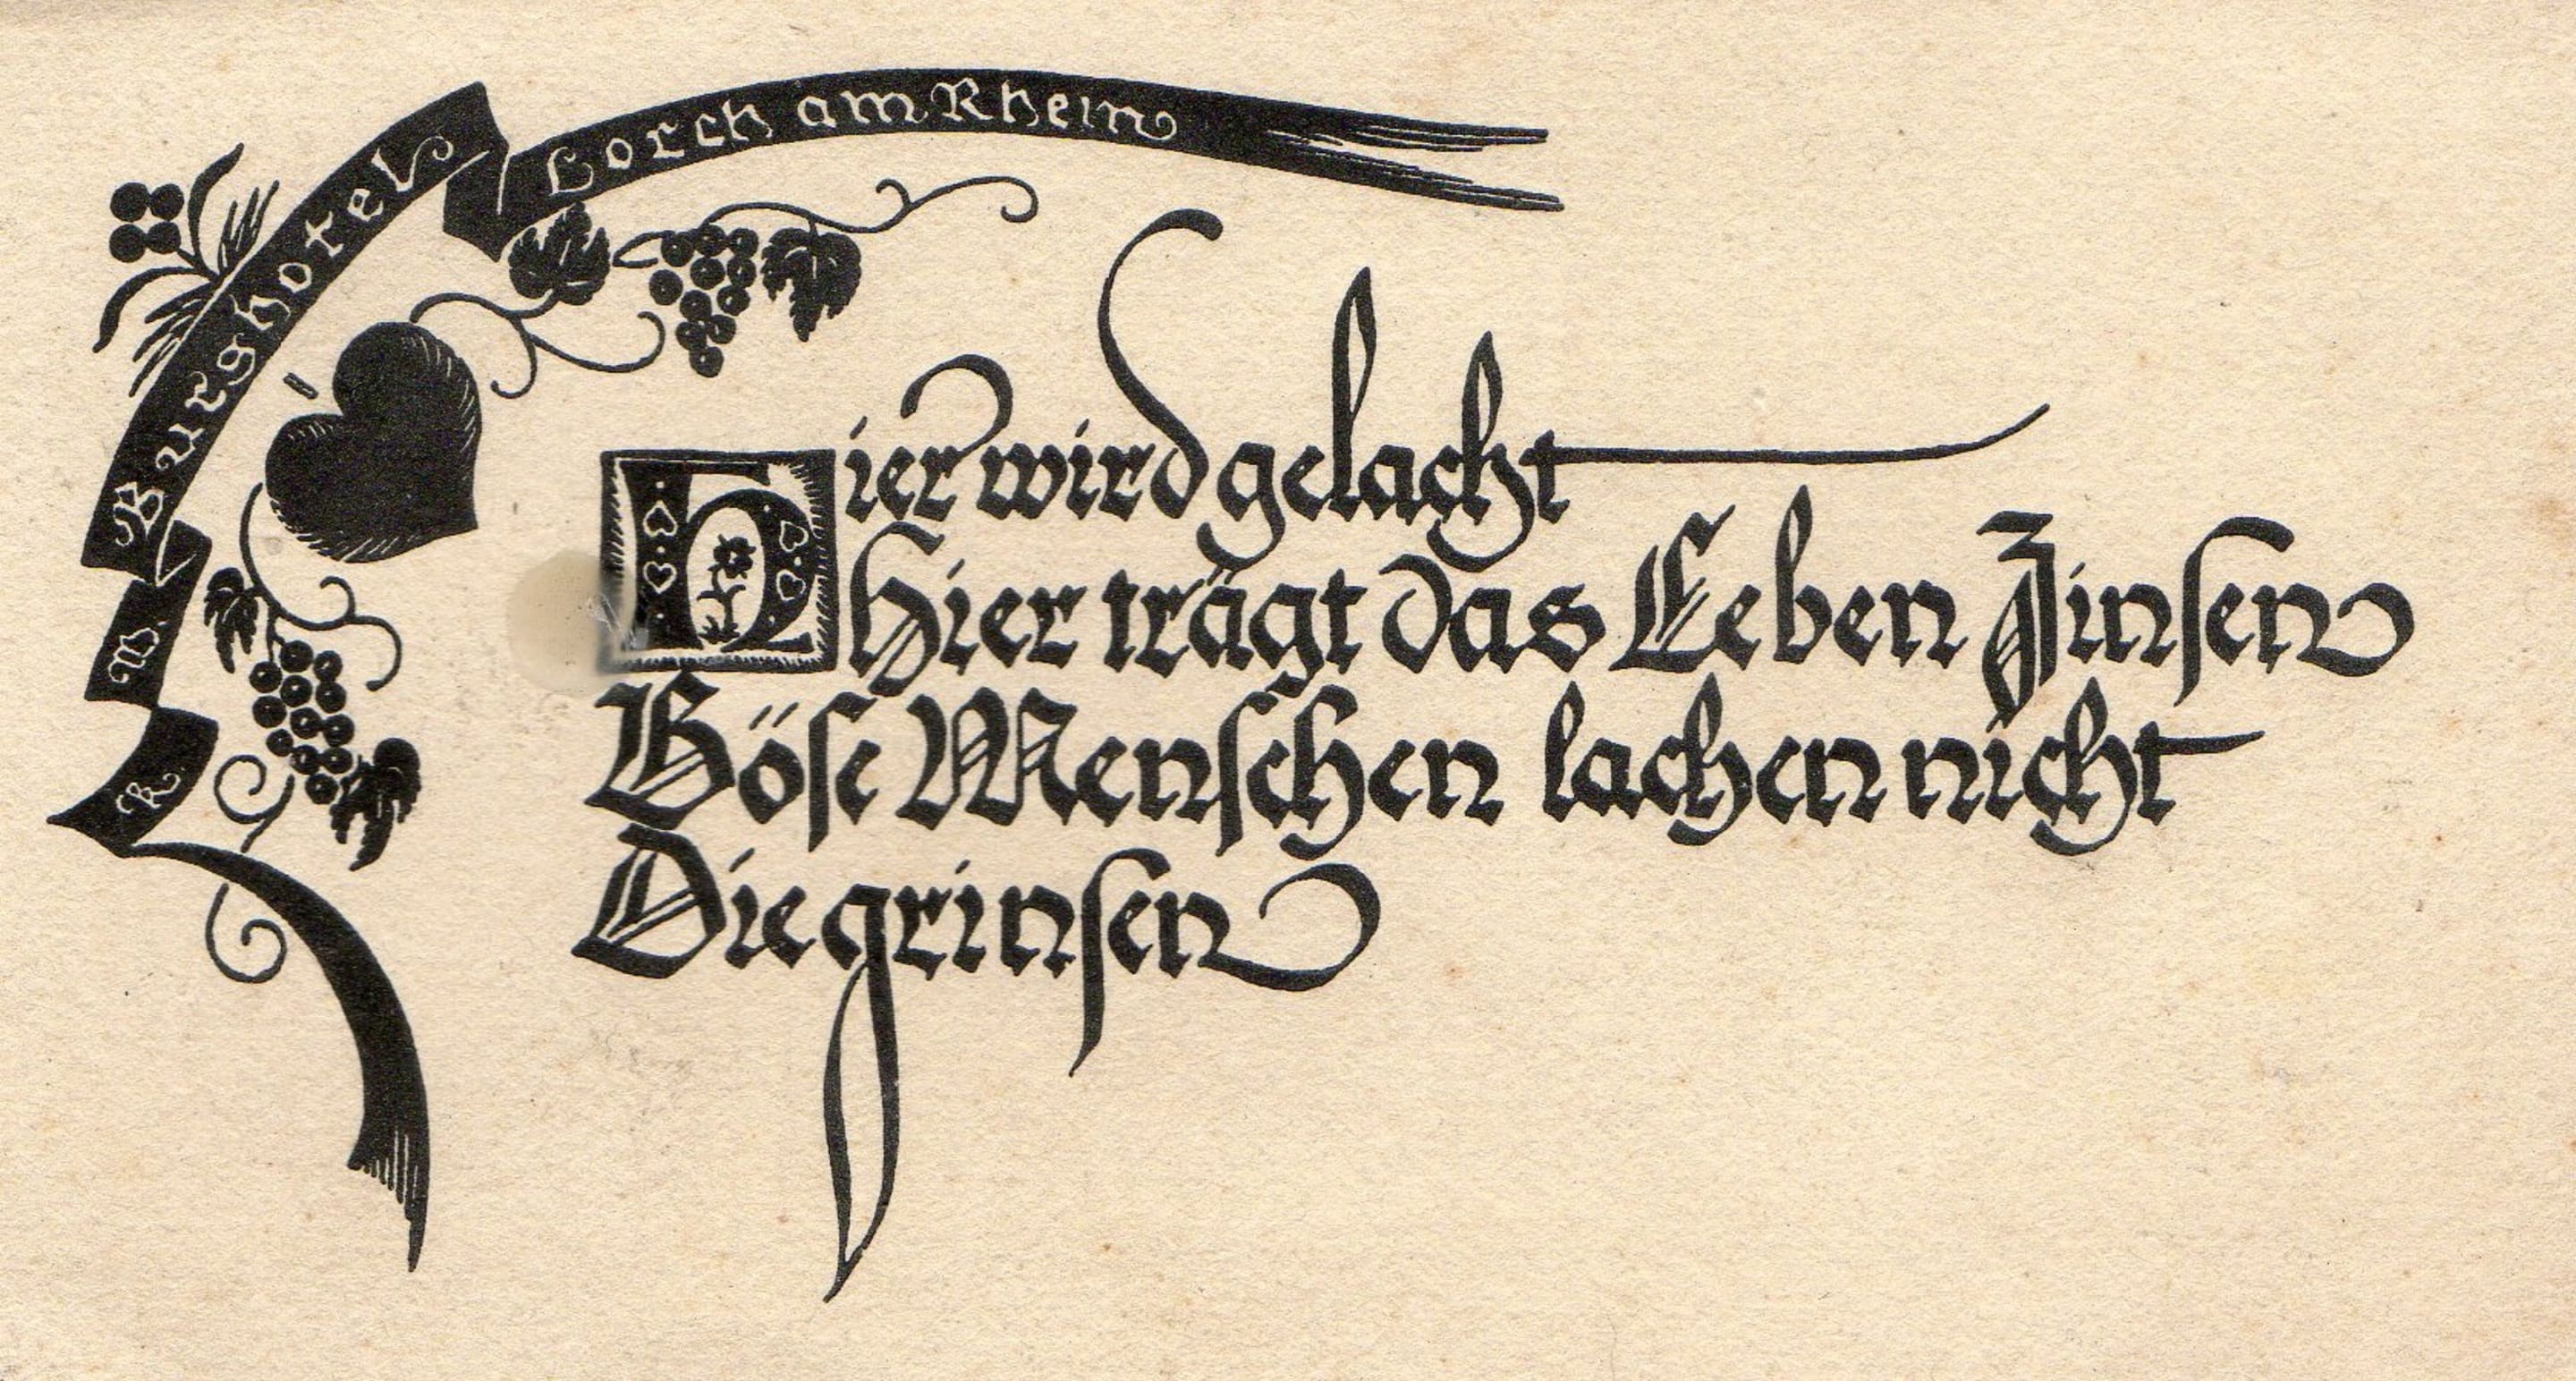 Burghotel
Lorch am Rhein
W.
K
Hier wird gelacht
Hier trägt das Leben Zinsen
Böse Menschen lachen nicht
Die grinsen